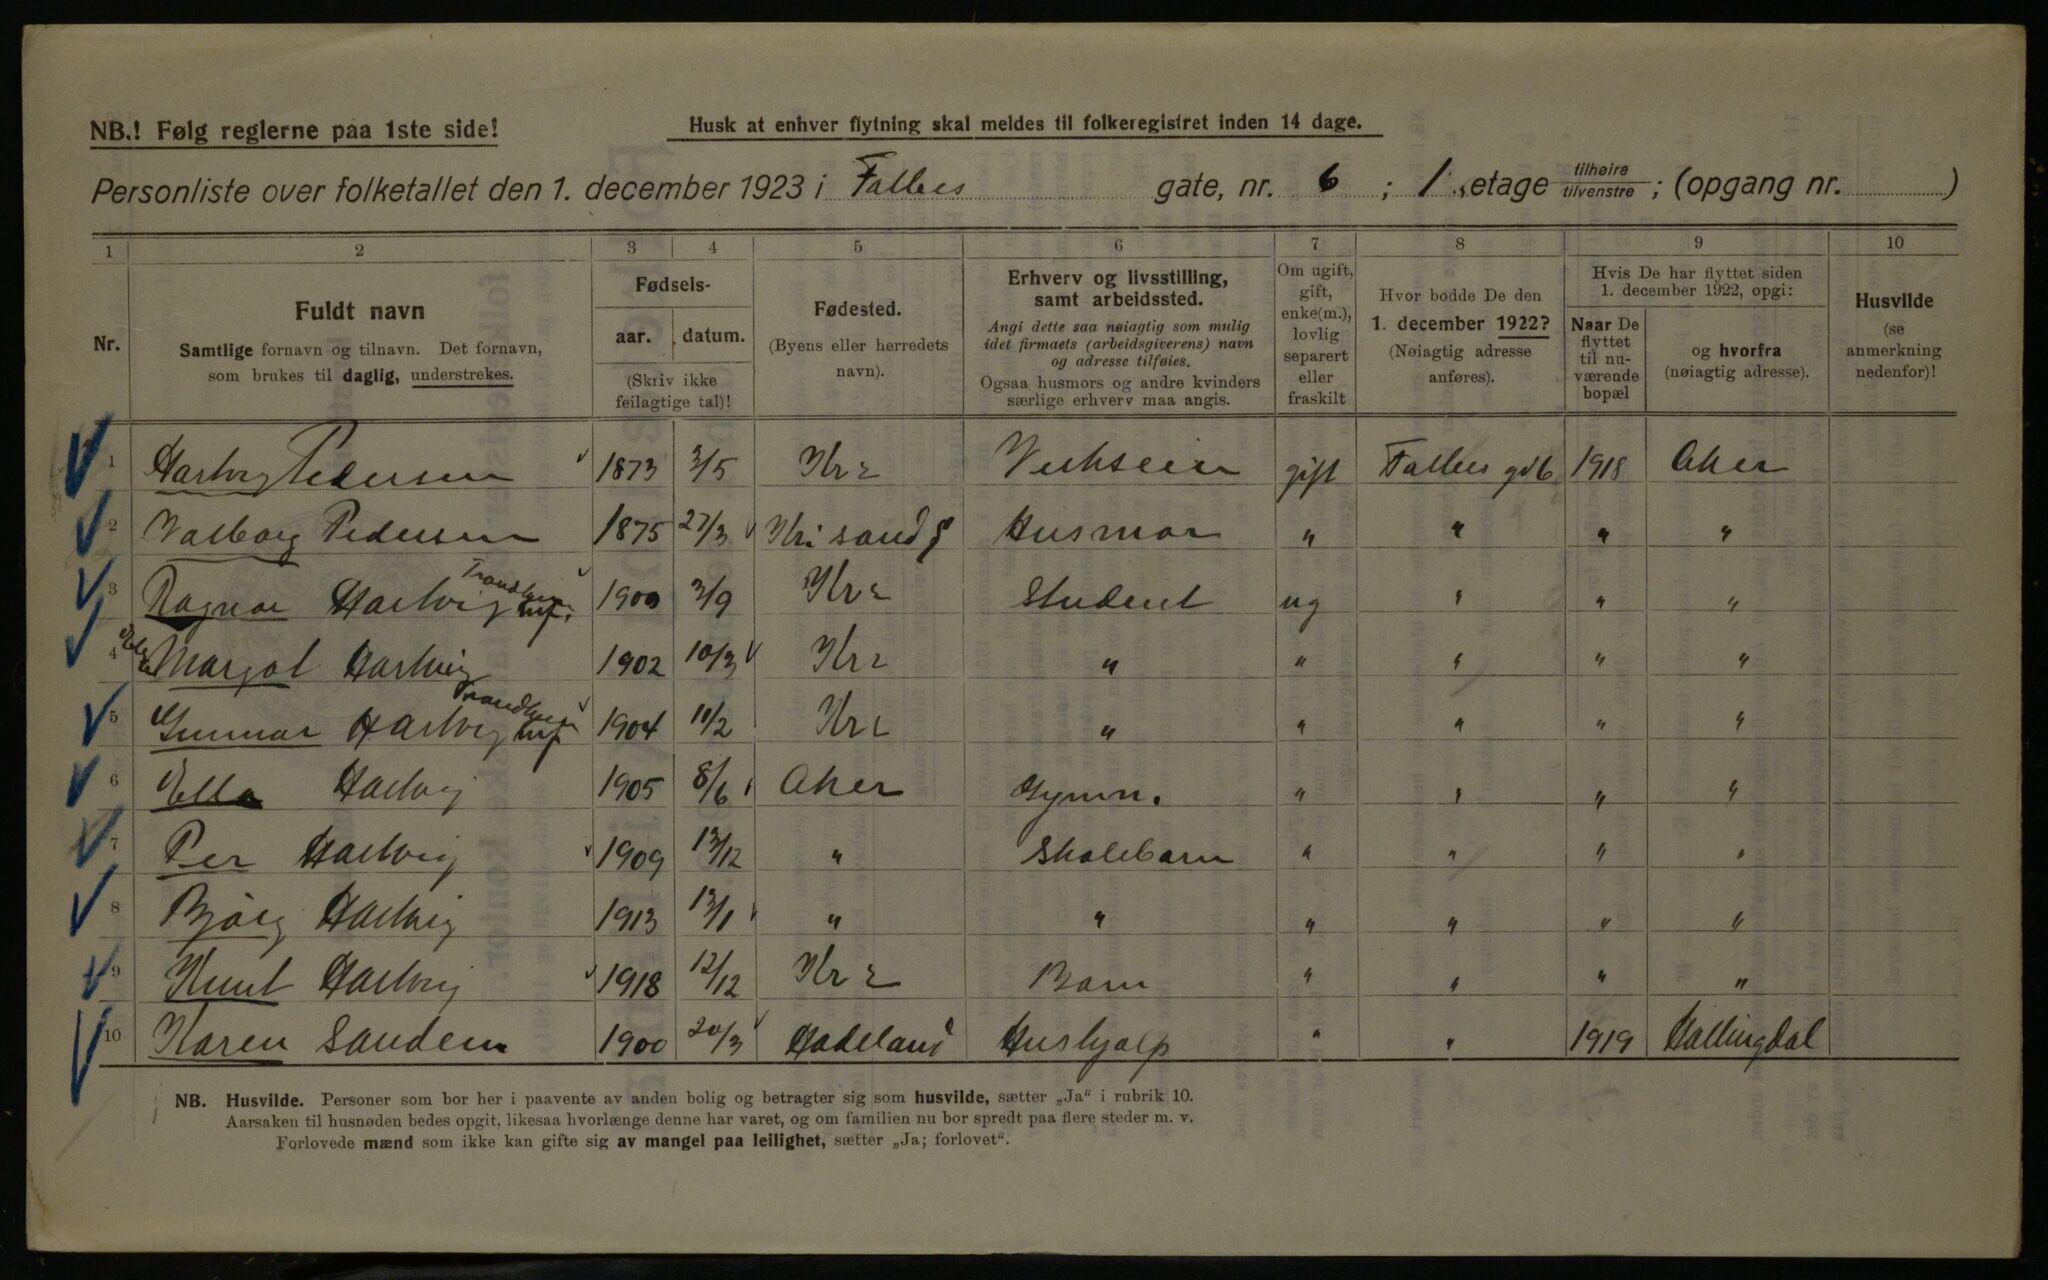 NB.! Følg reglerne paa 1ste side!
Husk at enhver flytning skal meldes til folkeregistret inden 14 dage.
Personliste over folketallet den 1. december 1923 i Falbes gate, nr. 6 ; 1 etage tilhøire tilvenstre ; (opgang nr. )
1 2 3 4 5 6 7 8 9 10
Nr.
Fuldt navn
Samtlige fornavn og tilnavn. Det fornavn,
som brukes til daglig, understrekes.
Fødsels-
aar. datum.
(Skriv ikke
feilagtige tal)!
Fødested.
(Byens eller herredets
navn).
Erhverv og livsstilling,
samt arbeidssted.
Angi dette saa nøiagtig som mulig
idet firmaets (arbeidsgiverens) navn
og adresse tilføies.
Ogsaa husmors og andre kvinders
særlige erhverv maa angis.
Om ugift,
gift,
enke(m.),
lovlig
separert
eller
fraskilt
Hvor bodde De den
1. december 1922?
(Nøiagtig adresse
anføres).
Hvis De har flyttet siden
1. december 1922, opgi:
Naar De
flyttet
til nu-
værende
bopæl
og hvorfra
(nøiagtig adresse).
Husvilde
(se
anmerkning
nedenfor)!
1 Hartvig Pedersen 1873 3/5 Kra Verkseier gift Falbes gd 6 1918 Aker
2 Valborg Pedersen 1875 27/3 Kri sand S Husmor " " " "
3 Ragnar Hartvig Trondhjem 1900 3/9 Kra Student ug " " "
4 Margot Hartvig 1902 10/3 Kra " " " " "
5 Gunnar Hartvig Trondhjem 1904 10/2 Kra " " " " "
6 Ella Hartvig 1905 8/6 Aker Gymn. " " " "
7 Per Hartvig 1909 13/12 " Skolebarn " " " "
8 Bjørg Hartvig 1913 13/1 " " " " " "
9 Knut Hartvig 1918 12/12 Kra Barn " " " "
10 Karen Sanden 1900 20/3 Hadeland Hushjælp " " 1919 Hallingdal
NB. Husvilde. Personer som bor her i paavente av anden bolig og betragter sig som husvilde, sætter „Ja" i rubrik 10.
Aarsaken til husnøden bedes opgit, likesaa hvorlænge denne har varet, og om familien nu bor spredt paa flere steder m. v.
Forlovede mænd som ikke kan gifte sig av mangel paa leilighet, sætter „Ja; forlovet".